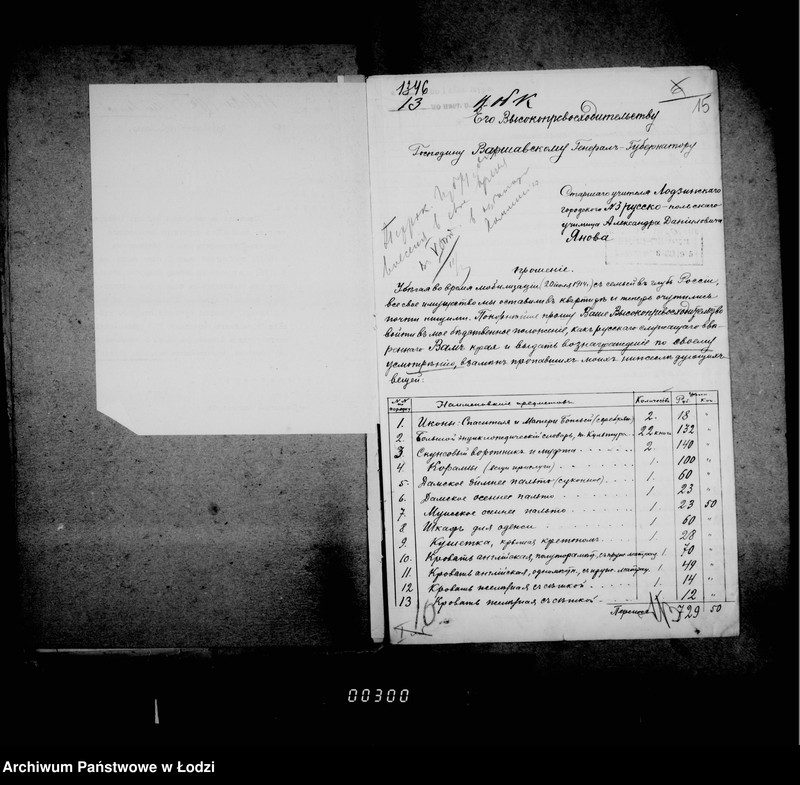 1346
13
6
15
Его Высокопревосходительству
Господину Варшавскому Генералъ-Губернатору
Старшаго учителя Лодзинскаго
городского №3 русско-польскаго
училища Александра Даніиловича
Янова
Прошеніе.
Уѣзжая во время мобилизаціи (20 іюля 1914 г.) съ семьей въ глубь Россіи,
все свое имущество мы оставили въ квартирѣ и теперь очутились
почти нищими. Покорнѣйше прошу Ваше Высокопревосходительство
войти въ мое бѣдственное положеніе, какъ русскаго служащаго ввѣ-
реннаго Вамъ края и выдать вознагражденіе по своему
усмотрѣнію, взамѣнъ пропавшихъ моихъ нижеслѣдующихъ
вещей:
Наименованіе предметовъ Количество Руб. Коп.
1. Иконы: Спасителя и Матери Божьей (серебрян) 2. 18 "
2. Большой энциклопедическій словарь, 22 кн. 132 "
3. Скунсовый воротникъ и муфта 2. 140 "
4. (вещи прислуги) 1. 100 "
5. Дамское зимнее пальто (суконное) 1. 60 "
6. Дамское осеннее пальто 1. 23 "
7. Мужское пальто 1. 23 50
8. Шкафъ для одежи 1. 60 "
9. Кушетка, крытая кретономъ 1. 28 "
10. Кровать англійская, съ матрац. 1. 70 "
11. Кровать англійская, съ матрац. 1. 49 "
12. Кровать желѣзная съ сѣткой 1. 14 "
13. Кровать желѣзная съ сѣткой 1. 12 "
729 50
00300
Archiwum Państwowe w Łodzi